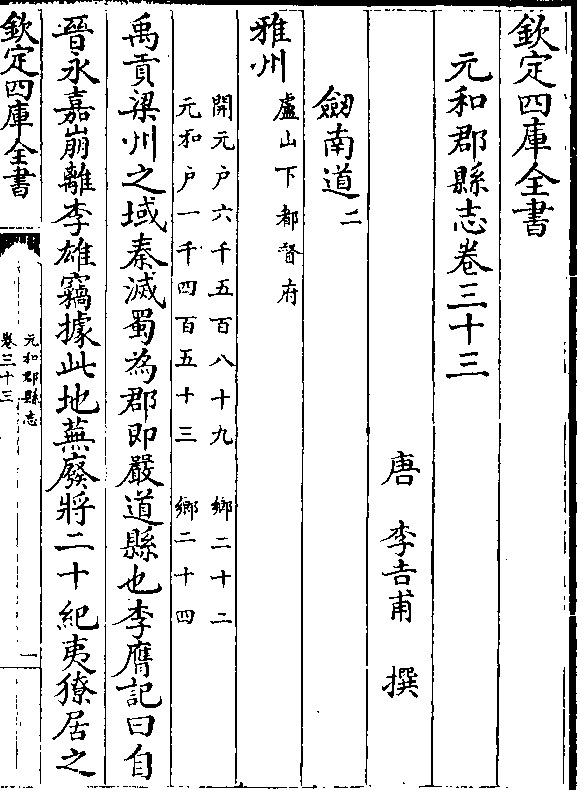 欽定四庫全書
元和郡縣志卷三十三
唐 李吉甫 撰
劒南道二
雅州盧山下都督府
開元户六千五百八十九 鄉二十二
元和户一千四百五十三 鄉二十四
禹貢梁州之域秦滅蜀為郡即嚴道縣也李膺記曰自
晉永嘉崩離李雄竊據此地蕪廢將二十紀夷獠居之
欽定四庫全書
元和郡縣志
卷三十三
一